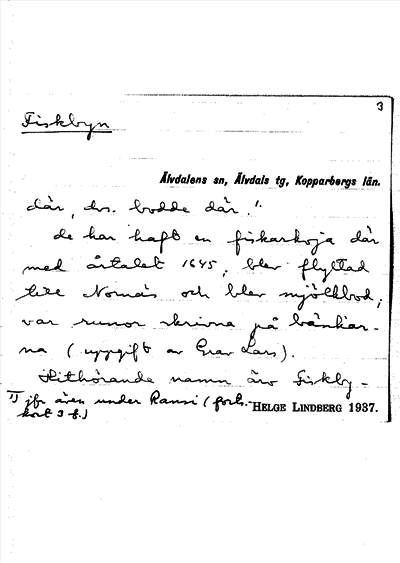 3
Fiskbyn
Älvdalens sn, Älvdals tg, Kopparbergs län.
där, dvs. bodde där.¹⁾
de har haft en fiskarkoja där
med årtalet 1645, blev flyttad
till Nornäs och blev mjölkbod,
var runor skrivna på bänkar-
na (uppgift av Erav Lars).
Hithörande namn äro Fiskby-
¹⁾ jfr även under Ransi (forts.-
kort 3 f.)
HELGE LINDBERG 1937.